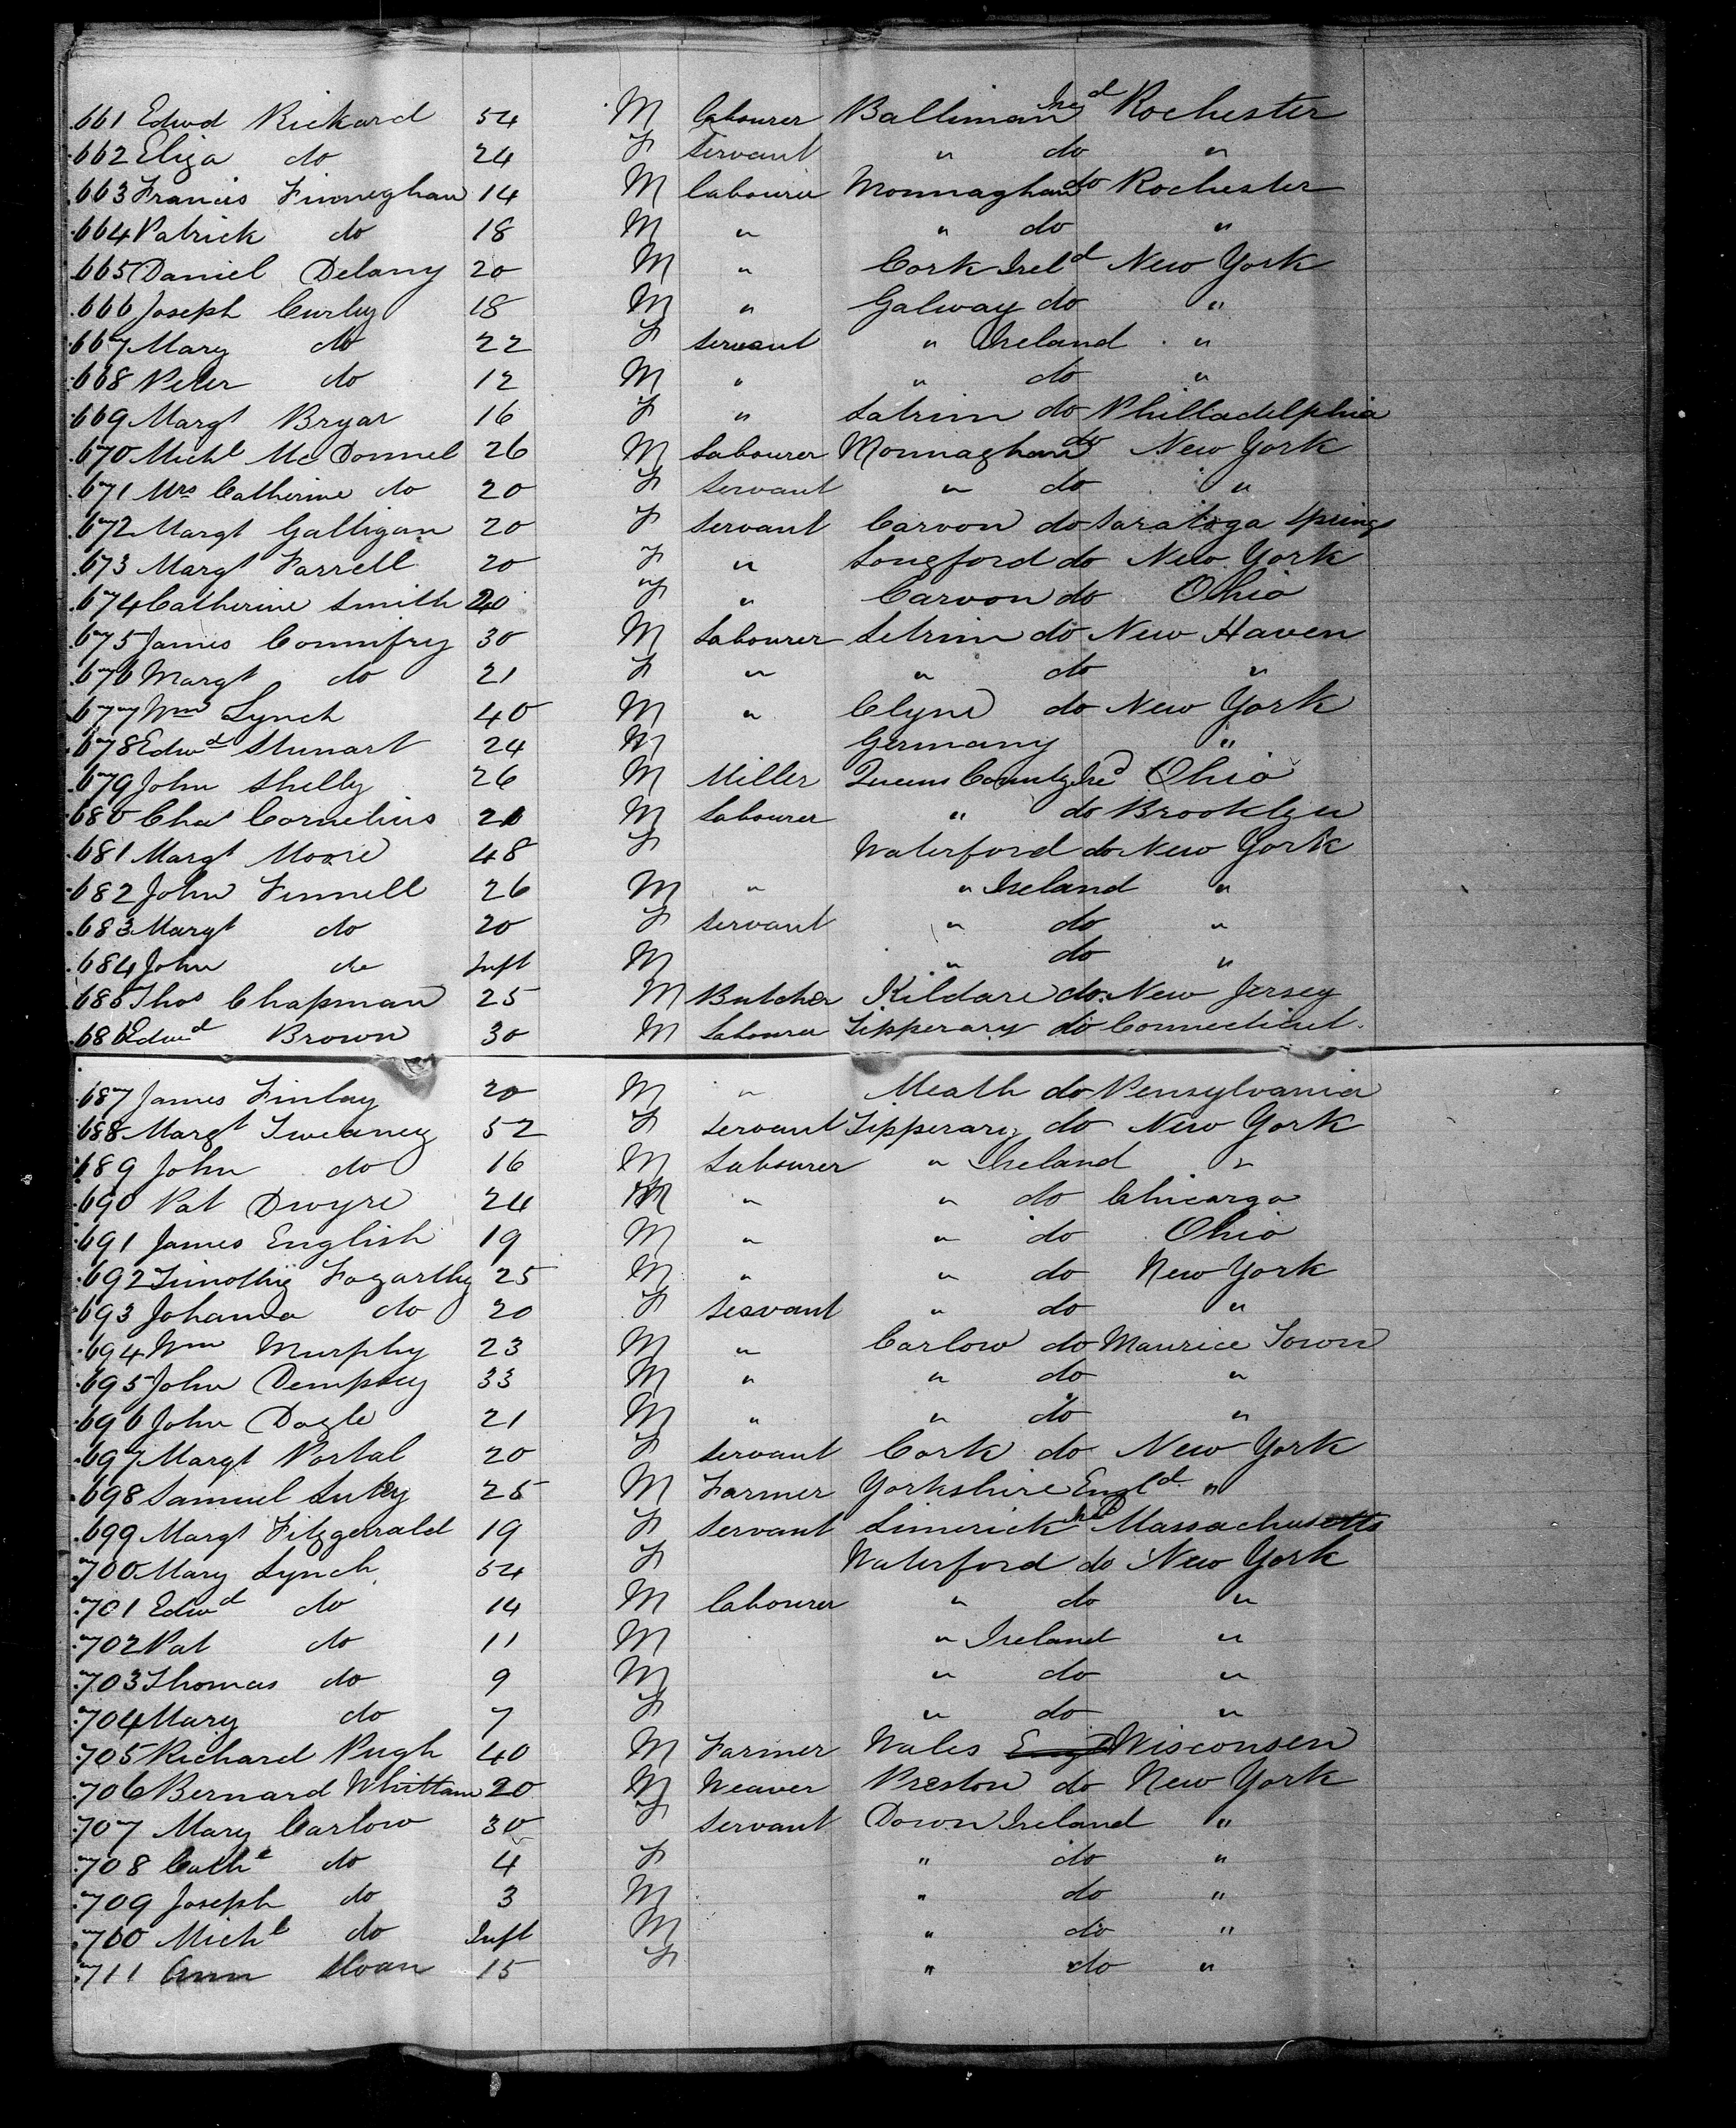 661 Edwd Rickard 54 M labourer Balliman Ired Rochester
662 Eliza do 24 F servant " do "
663 Francis Finneghan 14 M labourer Monnaghan do Rochester
664 Patrick do 18 M " " do "
665 Daniel Delany 20 M " Cork Ireld New York
666 Joseph Curley 18 M " Galway do "
667 Mary do 22 F servant " Ireland "
668 Peter do 12 M " " do "
669 Margt Bryar 16 F " Latrim do Philladelphia
670 Michl Mc Donnel 26 M Labourer Monnaghan do New York
671 Mrs Catherine do 20 F servant " do "
672 Margt Galligan 20 F servant Carvon do Saratoga Springs
673 Margt Farrell 20 F " Longford do New York
674 Catherine Smith 20 F " Carvon do Ohio
675 James Connifry 30 M Labourer Letrim do New Haven
676 Margt do 21 F " " do "
677 Wm Lynch 40 M " Clyne do New York
678 Edwd 24 M Germany "
679 John Shelly 26 M Miller Queens County Ired Ohio
680 Chas Cornelius 21 M Labourer " do Brooklyn
681 Margt Moore 48 F Waterford do New York
682 John Fennell 26 M " " Ireland "
683 Margt do 20 F servant " do "
684 John do Inft M " do "
685 Thos Chapman 25 M Butcher Kildare do New Jersey
686 Edwd Brown 30 M Labourer Tipperary do Connecticut.
687 James Finlay 20 M " Meath do Pensylvania
688 Margt Sweaney 52 F servant Tipperary do New York
689 John do 16 M Labourer " Ireland "
690 Pat Dwyre 24 M " " do Chicargo
691 James English 19 M " " do Ohio
692 Timothy Fogarthy 25 M " " do New York
693 Johanna do 20 F servant " do "
694 Wm Murphy 23 M " Carlow do Maurice Town
695 John Dempsey 33 M " " do "
696 John Dogle 21 M " " do "
697 Margt Portal 20 F servant Cork do New York
698 Samuel 25 M Farmer Yorkshire Engld "
699 Margt Fitzgerrald 19 F servant Limerick Ired Massachusetts
700 Mary Lynch 54 F Waterford do New York
701 Edwd do 14 M labourer " do "
702 Pat do 11 M " Ireland "
703 Thomas do 9 M " do "
704 Mary do 7 F " do "
705 Richard Pugh 40 M Farmer Wales Engd Wisconsen
706 Bernard Whittam 20 M Weaver Preston do New York
707 Mary Carlow 30 F servant Down Ireland "
708 Cathe do 4 F " do "
709 Joseph do 3 M " do "
700 Michl do Inft M " do "
711 Ann Sloan 15 F " do "